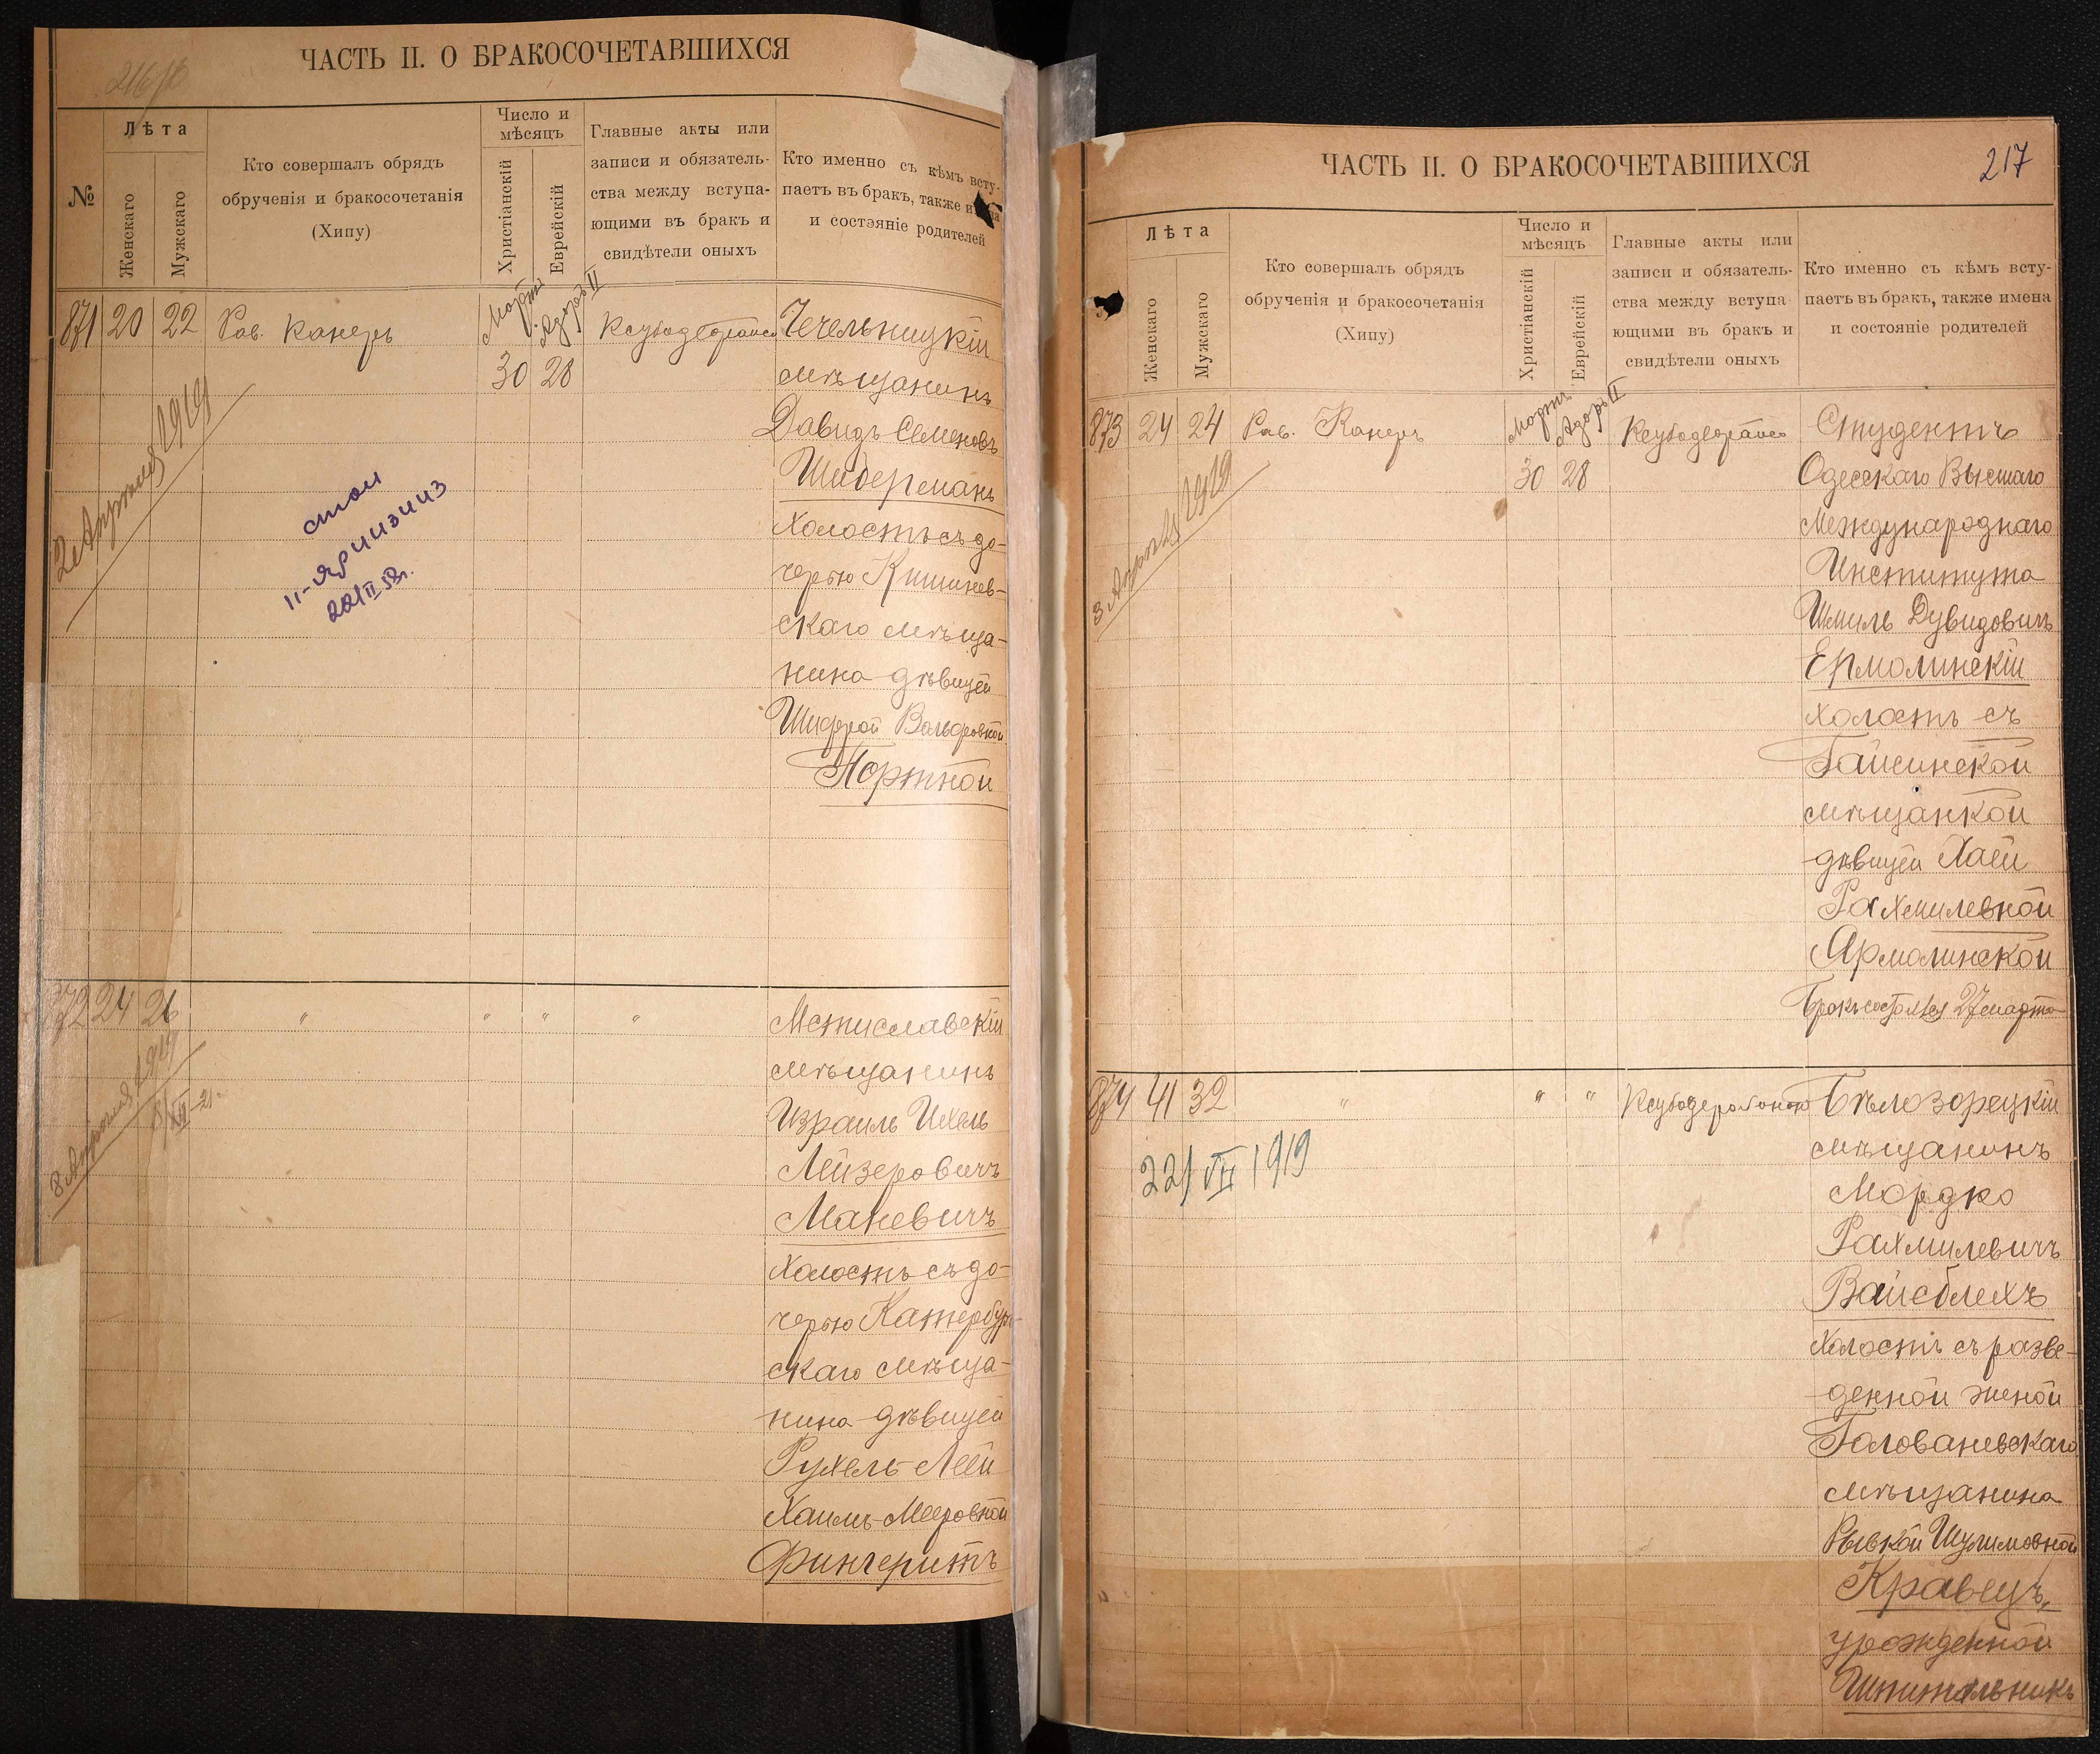 216 об
ЧАСТЬ II. О БРАКОСОЧЕТАВШИХСЯ
№
Лѣта
Женскаго
Мужскаго
Кто совершалъ обрядъ
обрученія и бракосочетанія
(Хипу)
Число и
мѣсяцъ
Христіанскій
Еврейскій
Главные акты или
записи и обязатель-
ства между вступа-
ющими въ бракъ и
свидѣтели оныхъ
Кто именно съ кѣмъ всту-
паетъ въ бракъ, также имена
и состояніе родителей
871 20 22 Рав. Канеръ
Мартъ 30
Адоръ II 28
Чечельницкій
мѣщанинъ
Давидъ Семеновъ
Шидерманъ
холостъ съ до-
черью Кишинев-
скаго мѣща-
нина дѣвицей
Шифрой Вольфовной
Портной
2 Апреля 1919
872 24 26 " " " "
Мстиславскій
мѣщанинъ
Израиль Ихель
Лейзеровичъ
Маневичъ
холостъ съ до-
черью Катербург-
скаго мѣща-
нина дѣвицей
Рухель-Леей
Хаимъ-Мееровной
Фингеритъ
8 Апреля 1919
ЧАСТЬ II. О БРАКОСОЧЕТАВШИХСЯ
217
Лѣта
Женскаго
Мужскаго
Кто совершалъ обрядъ
обрученія и бракосочетанія
(Хипу)
Число и
мѣсяцъ
Христіанскій
Еврейскій
Главные акты или
записи и обязатель-
ства между вступа-
ющими въ бракъ и
свидѣтели оныхъ
Кто именно съ кѣмъ всту-
паетъ въ бракъ, также имена
и состояніе родителей
873 24 24 Рав. Канеръ
Мартъ 30
Адоръ II 28
Студентъ
Одесскаго Высшаго
Международнаго
Института
Шмиль Дувидовичъ
Ермолинскій
холостъ съ
Гайсинской
мѣщанкой
дѣвицей Хаей
Рахмилевной
Ярмолинской
Бракъ состоялся 27 марта
3 Апреля 1919
874 41 32 " " "
Бѣлозорецкій
мѣщанинъ
Мордко
Рахмилевичъ
Вайсблехъ
холостъ съ разве-
денной женой
Голованевскаго
мѣщанина
Рывкой Шулимовной
Кравецъ,
урожденной
Шпитальникъ
22/VII 1919